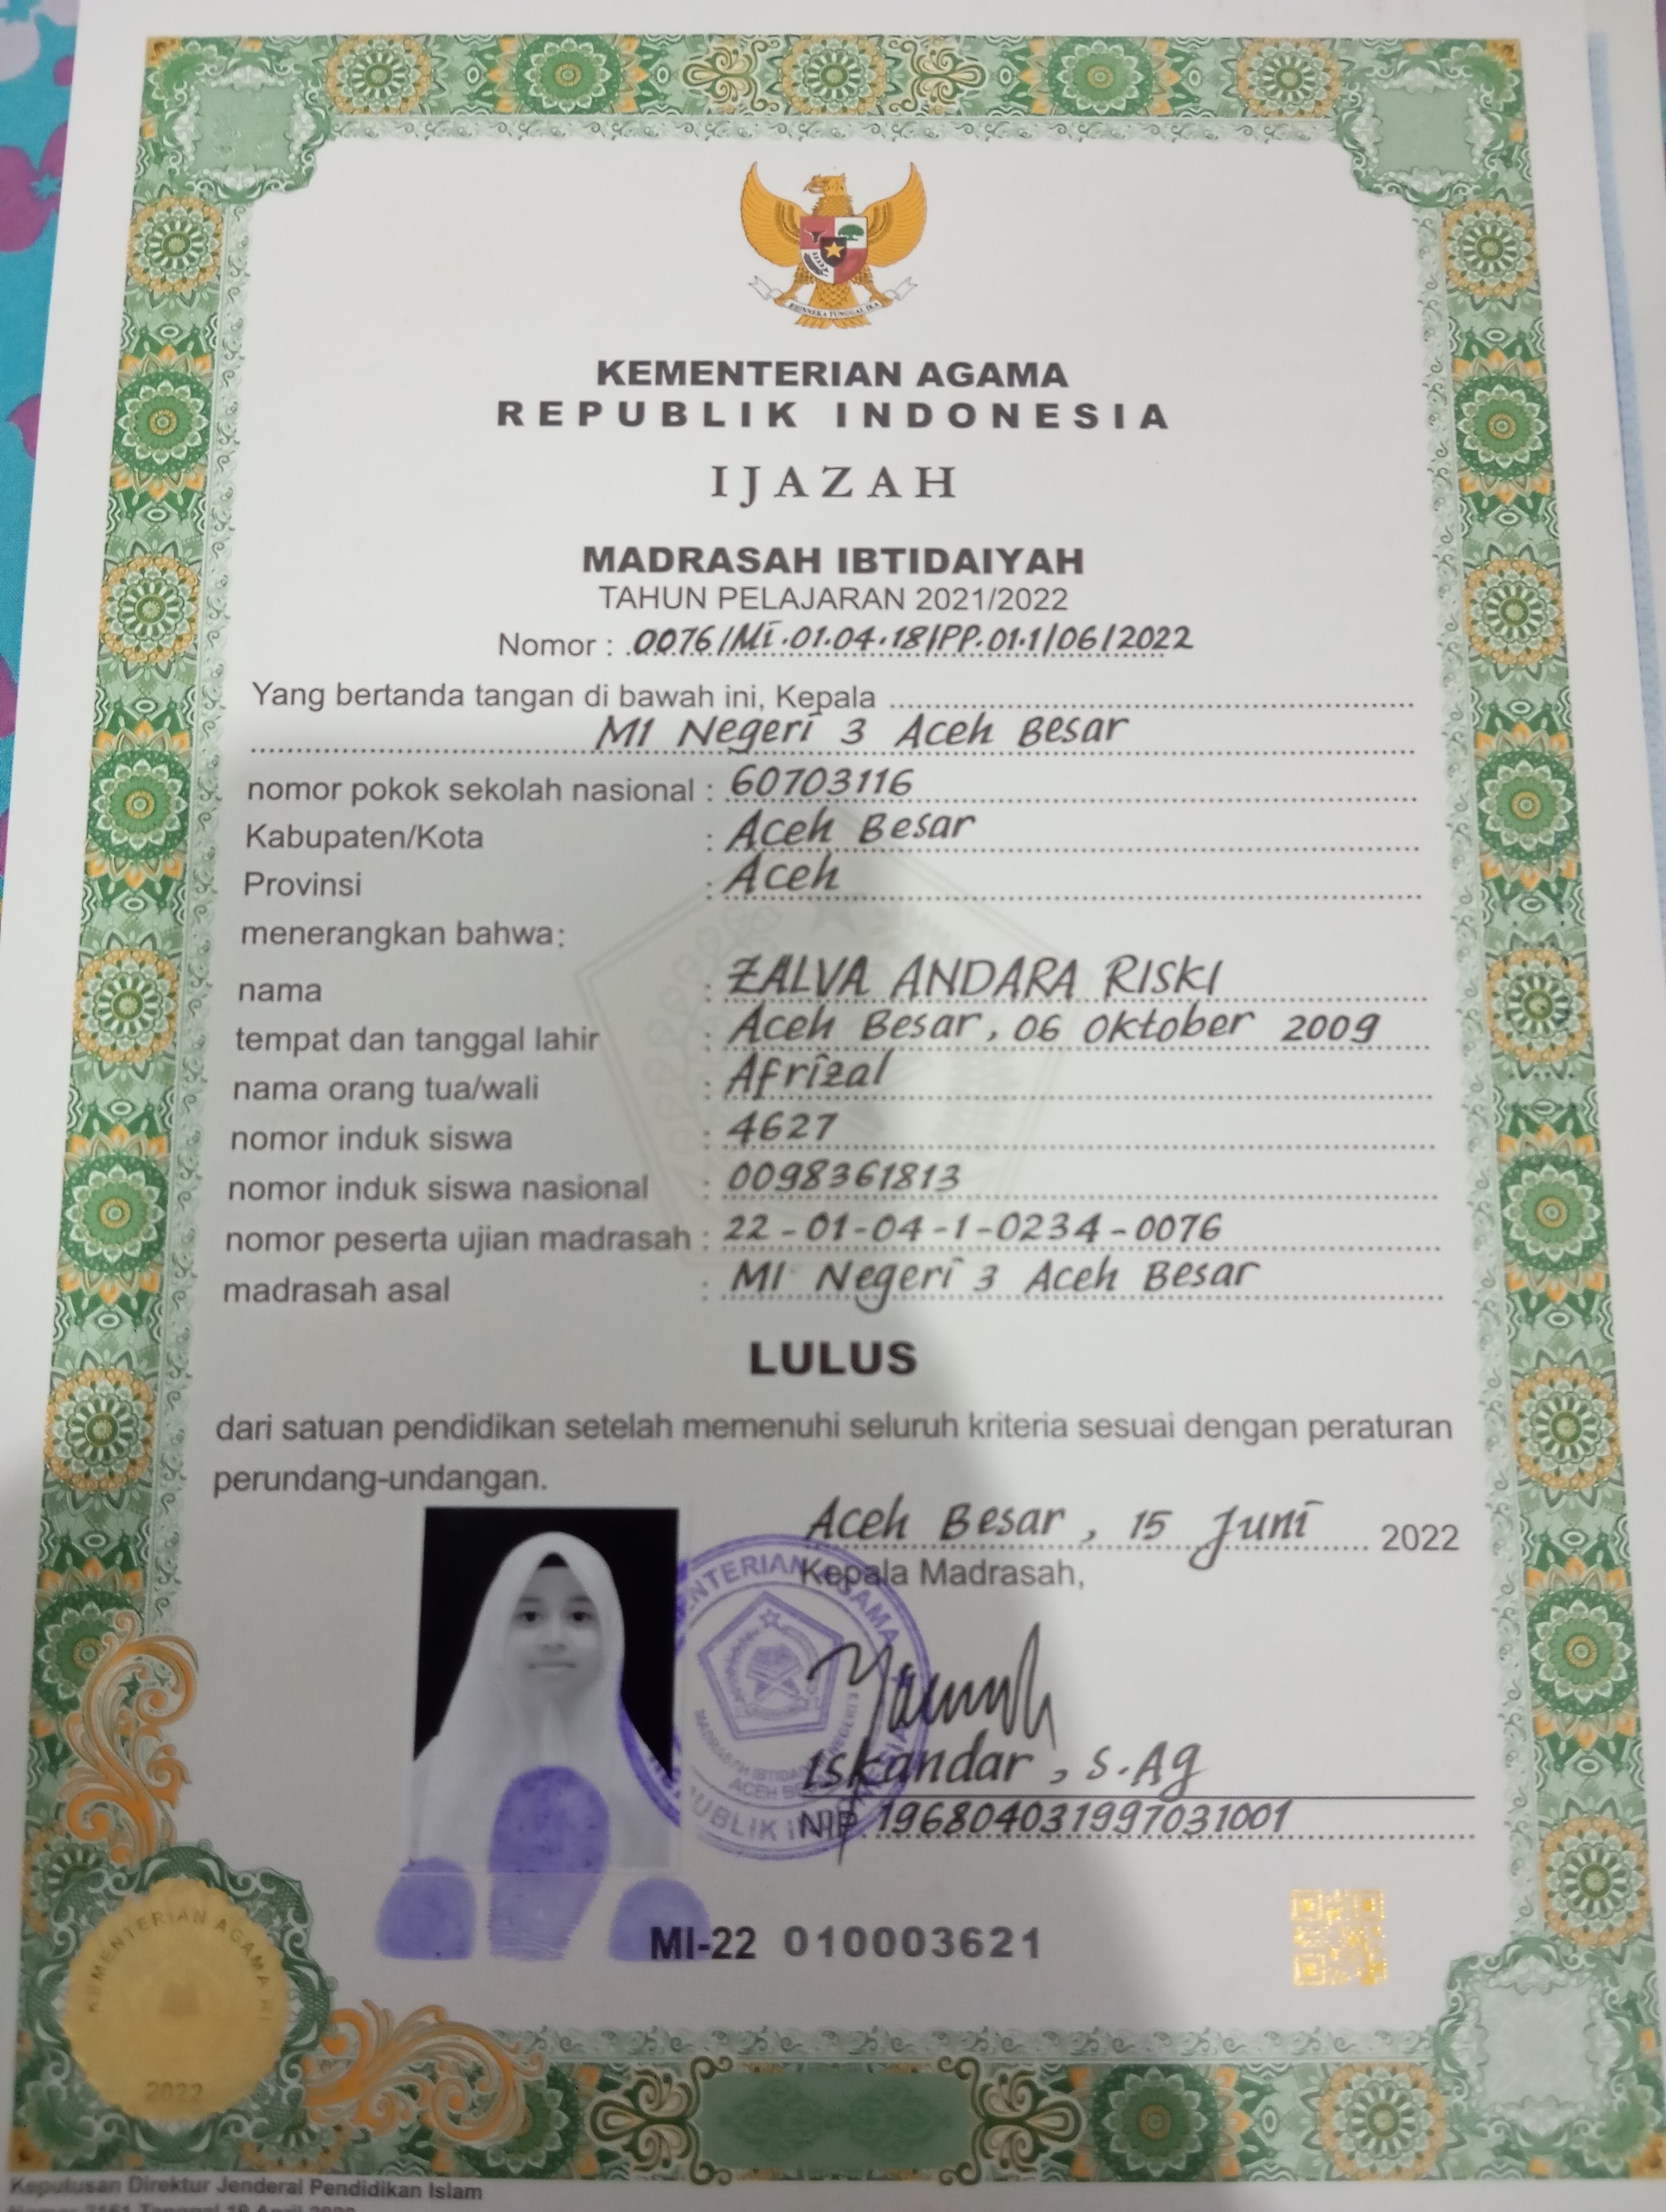 BHINNEKA TUNGGAL IKA
KEMENTERIAN AGAMA
REPUBLIK INDONESIA
IJAZAH
MADRASAH IBTIDAIYAH
TAHUN PELAJARAN 2021/2022
Nomor : 0076/Mi.01.04.18/PP.01.1/06/2022
Yang bertanda tangan di bawah ini, Kepala
MI Negeri 3 Aceh Besar
nomor pokok sekolah nasional : 60703116
Kabupaten/Kota : Aceh Besar
Provinsi : Aceh
menerangkan bahwa:
nama : ZALVA ANDARA RISKI
tempat dan tanggal lahir : Aceh Besar, 06 Oktober 2009
nama orang tua/wali : Afrizal
nomor induk siswa : 4627
nomor induk siswa nasional : 0098361813
nomor peserta ujian madrasah : 22-01-04-1-0234-0076
madrasah asal : MI Negeri 3 Aceh Besar
LULUS
dari satuan pendidikan setelah memenuhi seluruh kriteria sesuai dengan peraturan
perundang-undangan.
Aceh Besar, 15 Juni 2022
Kepala Madrasah,
KEMENTERIAN AGAMA
REPUBLIK INDONESIA
MADRASAH IBTIDAIYAH NEGERI 3
ACEH BESAR
Iskandar, S.Ag
NIP. 196804031997031001
MI-22 010003621
KEMENTERIAN AGAMA RI
2022
Keputusan Direktur Jenderal Pendidikan Islam
Nomor 3161 Tanggal 19 April